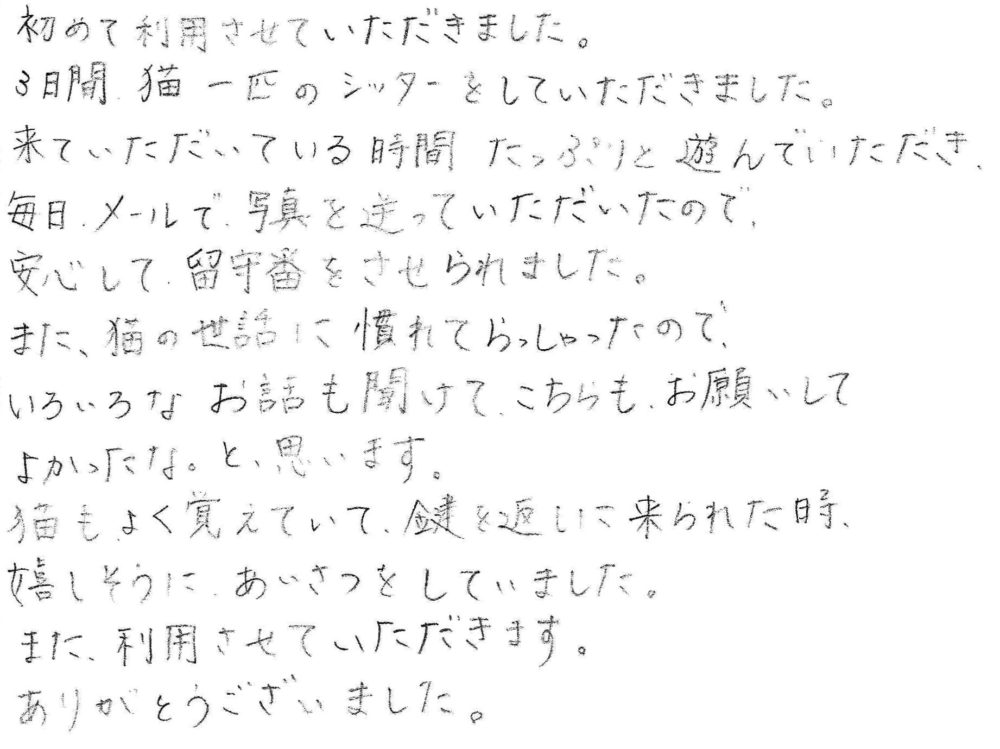 初めて利用させていただきました。
3日間、猫一匹のシッターをしていただきました。
来ていただいている時間たっぷりと遊んでいただき、
毎日、メールで、写真を送っていただいたので、
安心して、留守番をさせられました。
また、猫の世話に慣れてらっしゃったので、
いろいろなお話も聞けて、こちらも、お願いして
よかったな。と、思います。
猫も、よく覚えていて、鍵を返しに来られた時、
嬉しそうに、あいさつをしていました。
また、利用させていただきます。
ありがとうございました。